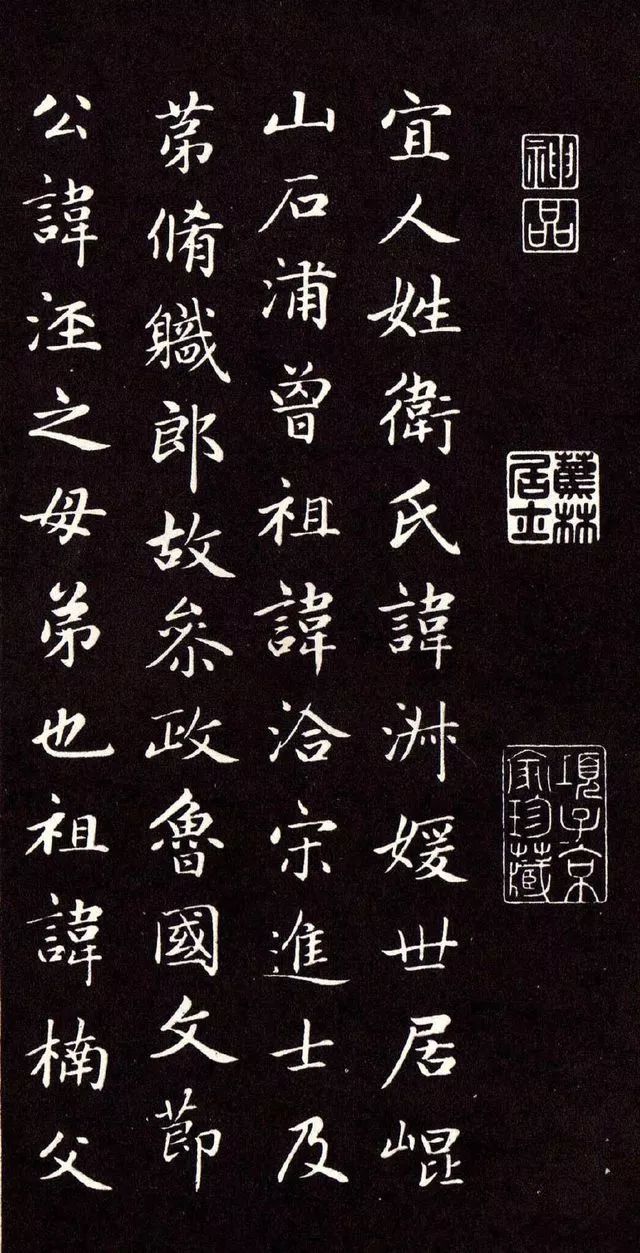 神品
蕉林居士
項子京家珍藏
宜人姓衛氏諱淑媛世居崐
山石浦曾祖諱洽宋進士及
苐脩職郎故叅政魯國文節
公諱涇之母弟也祖諱楠父